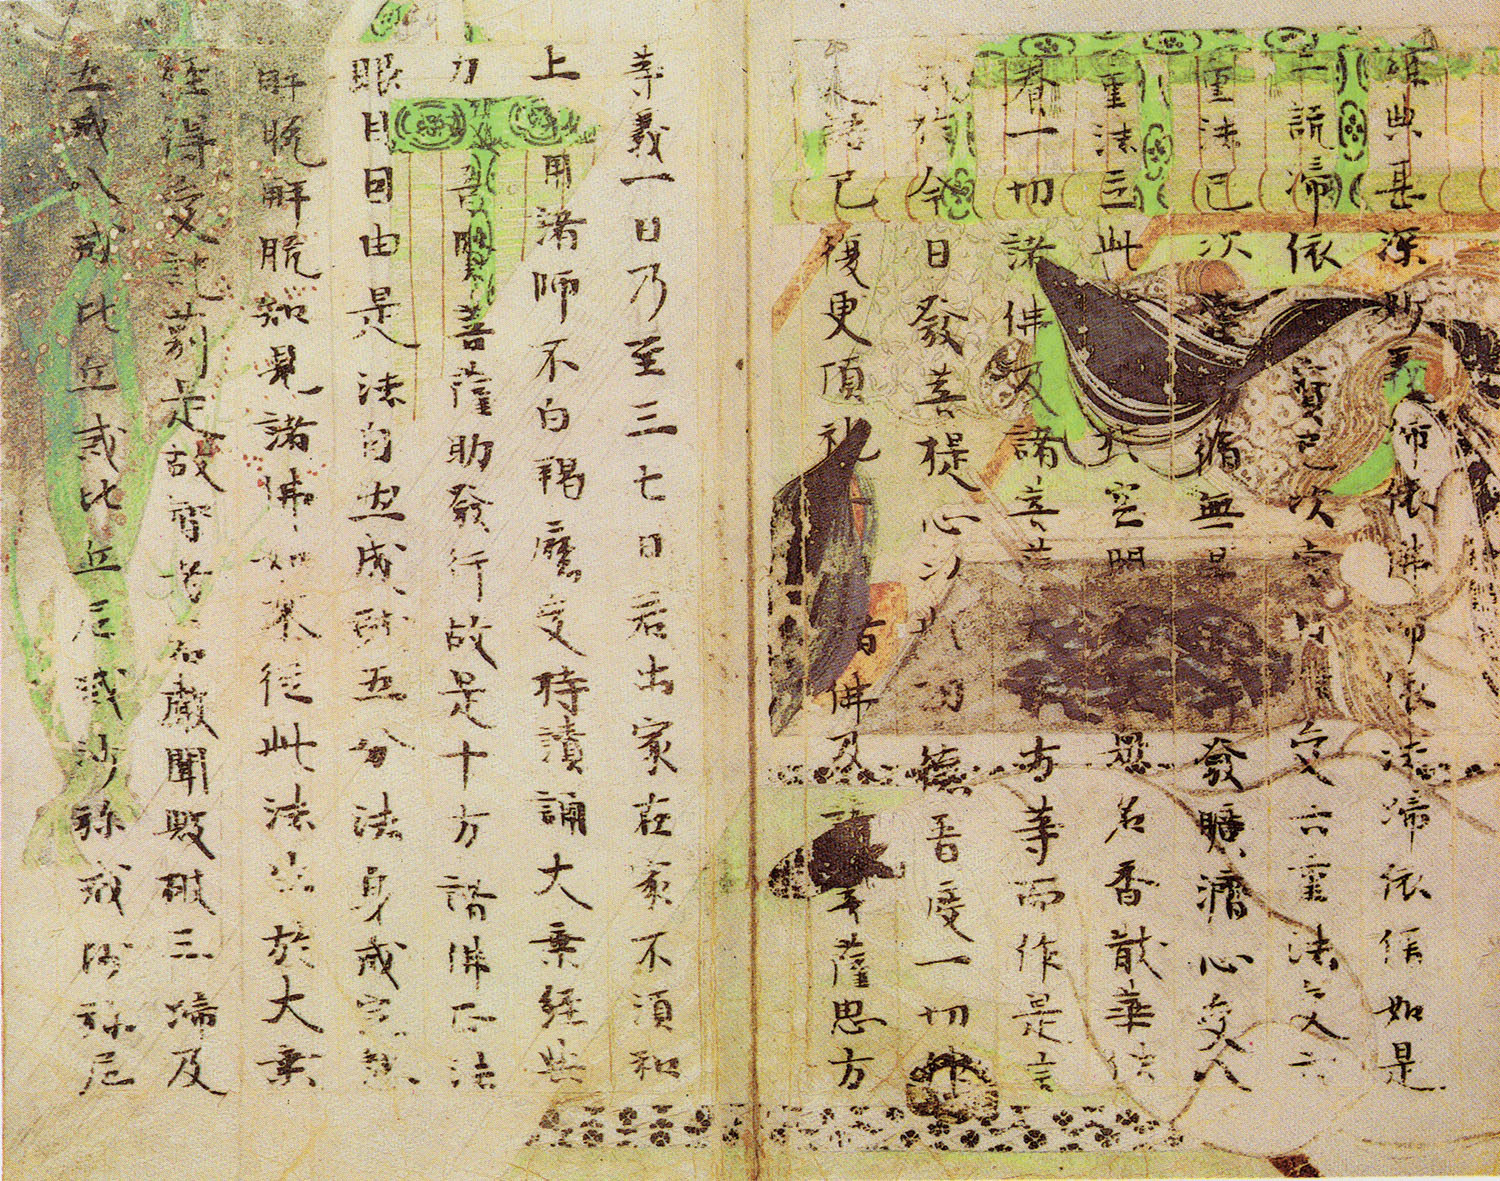 經典甚深妙義歸依佛歸依法歸依僧如是
三說歸依寶已次當自受六重法受六
重法已次當修無發曠濟心受八
重法立此於空閑眾名香散華供
養一切諸佛及諸菩方等而作是言
我於今日發菩提心以此功德普度一切作
是語已復更頂礼諸佛及諸菩薩思方
等義一日乃至三七日若出家在家不須和
上用諸師不白羯磨受持讀誦大乘經典
力普賢菩薩助發行故是十方諸佛正法
眼目因由是法自然成就五分法身戒定慧
解脫解脫知見諸佛如來從此法生於大乘
經得受記莂是故智者若聲聞毀破三歸及
五戒八戒比丘戒比丘尼戒沙弥戒沙弥尼